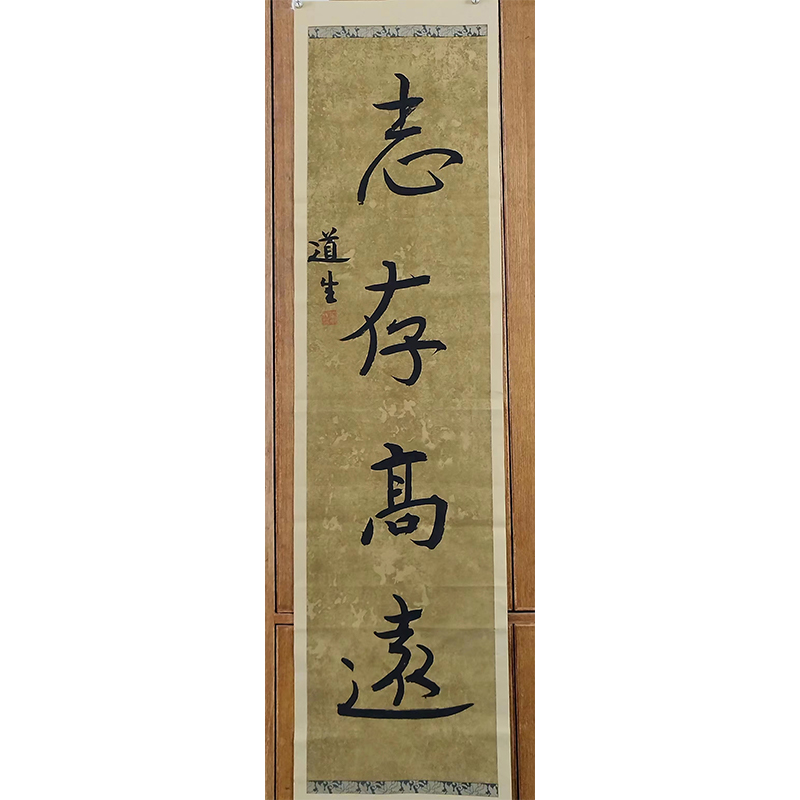 志存高遠
道生